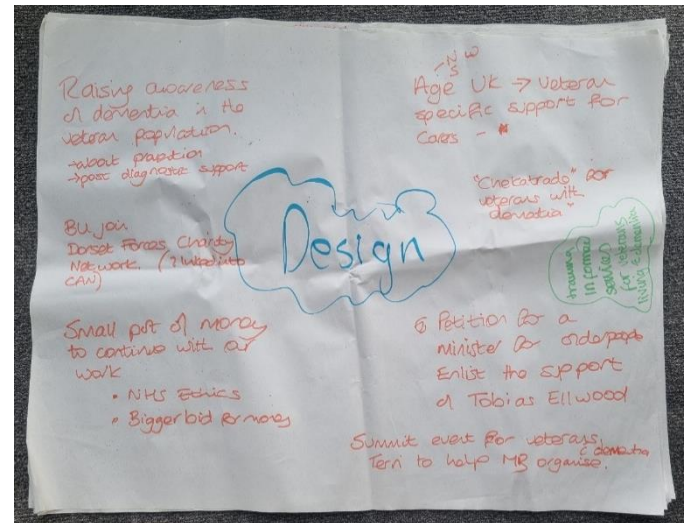 Raising awareness
of dementia in the
veteran population.
→about
→post diagnostic support
BU join
Dorset Forces Charity
Network. (? linked into
CAN)
Small pot of money
to continue with our
work
• NHS Ethics
• Bigger bid for money
Design
N W
S
Age UK → veteran
specific support for
Carers -
"Chekatrade" for
veterans with
dementia"
trauma
informed
services
for veterans
living c dementia
Petition for a
Minister for older people
Enlist the support
of Tobias Ellwood
Summit event for veterans
c dementia
Terri to help MB organise.